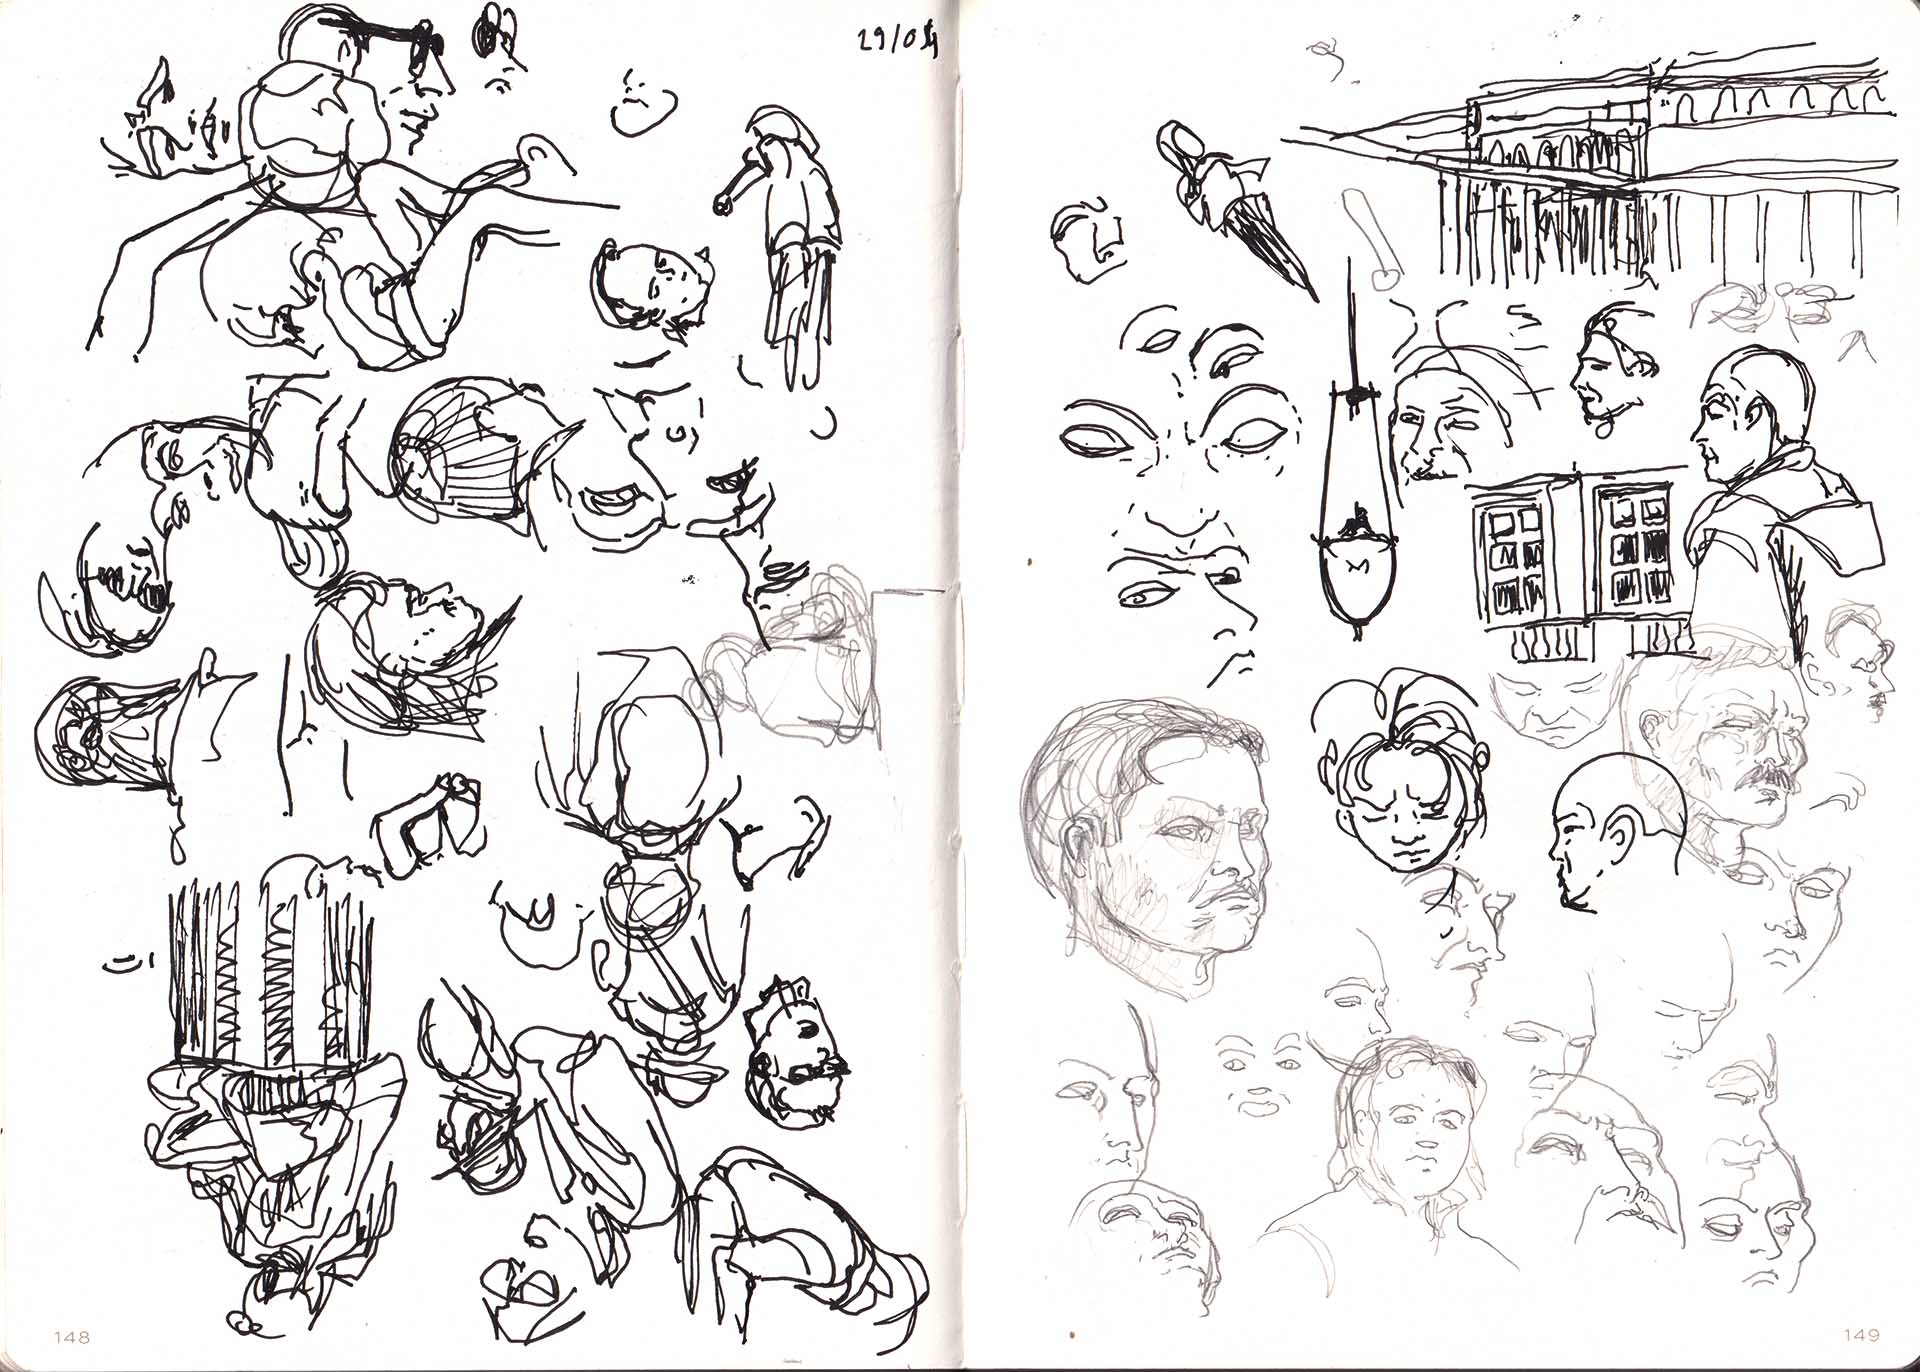 29/04
148
149